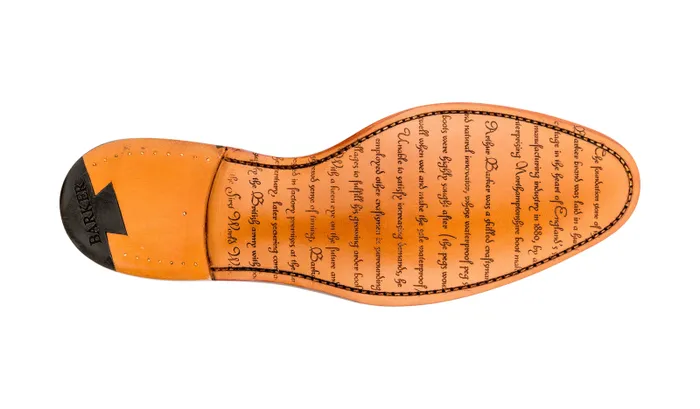 The foundation stone of
Barker brand was laid in a
cottage in the heart of England's
manufacturing industry in 1880, by a
terprising Northamptonshire boot
Arthur Barker was a skilled craftsman
and natural innovator, whose waterproof peg
boots were highly sought after (the pegs
swell when wet and make the sole waterproof
Unable to satisfy increasing demands, he
employed other craftsmen in surrounding
villages to fulfill his growing order book
With a keen eye on the future and
sense of timing, Bark
ed in factory premises at the
century, later securing
the British army with
the First World W
BARKER